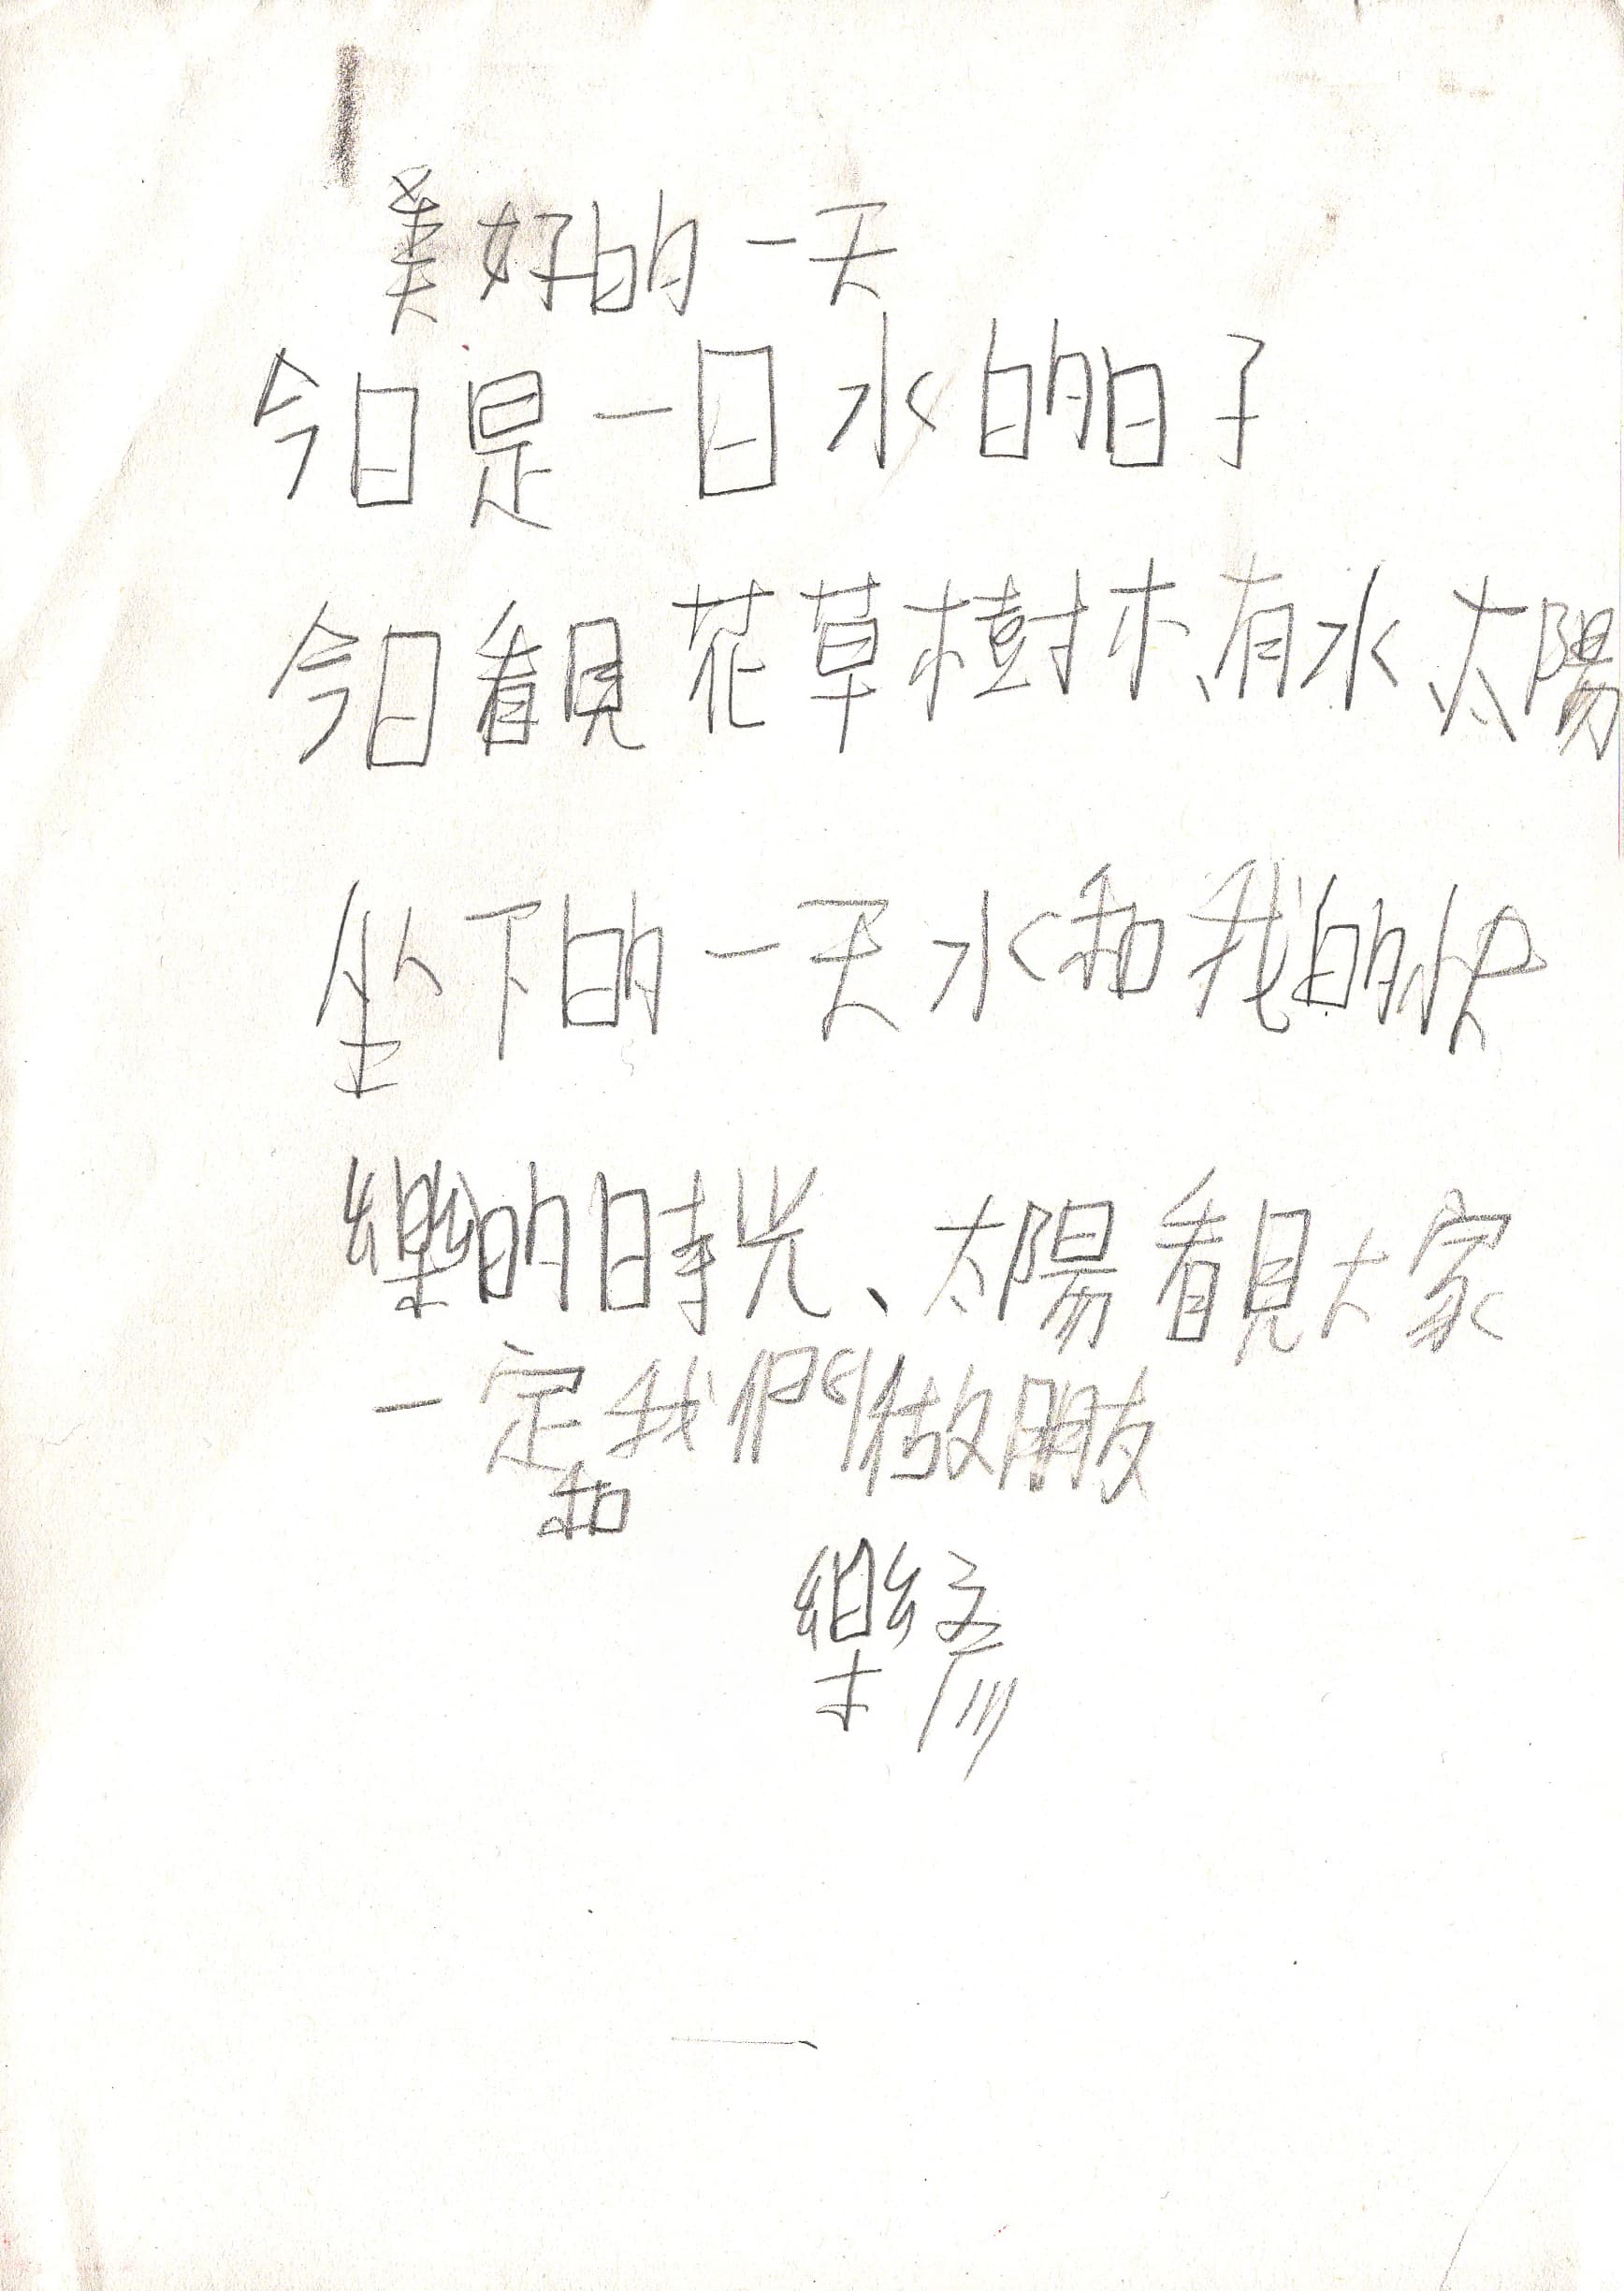 美好的一天
今日是一日水的日子
今日看見花草樹木、有水、太陽
坐下的一天水和我的快
樂的時光、太陽看見大家
一定我們做朋友
和
樂